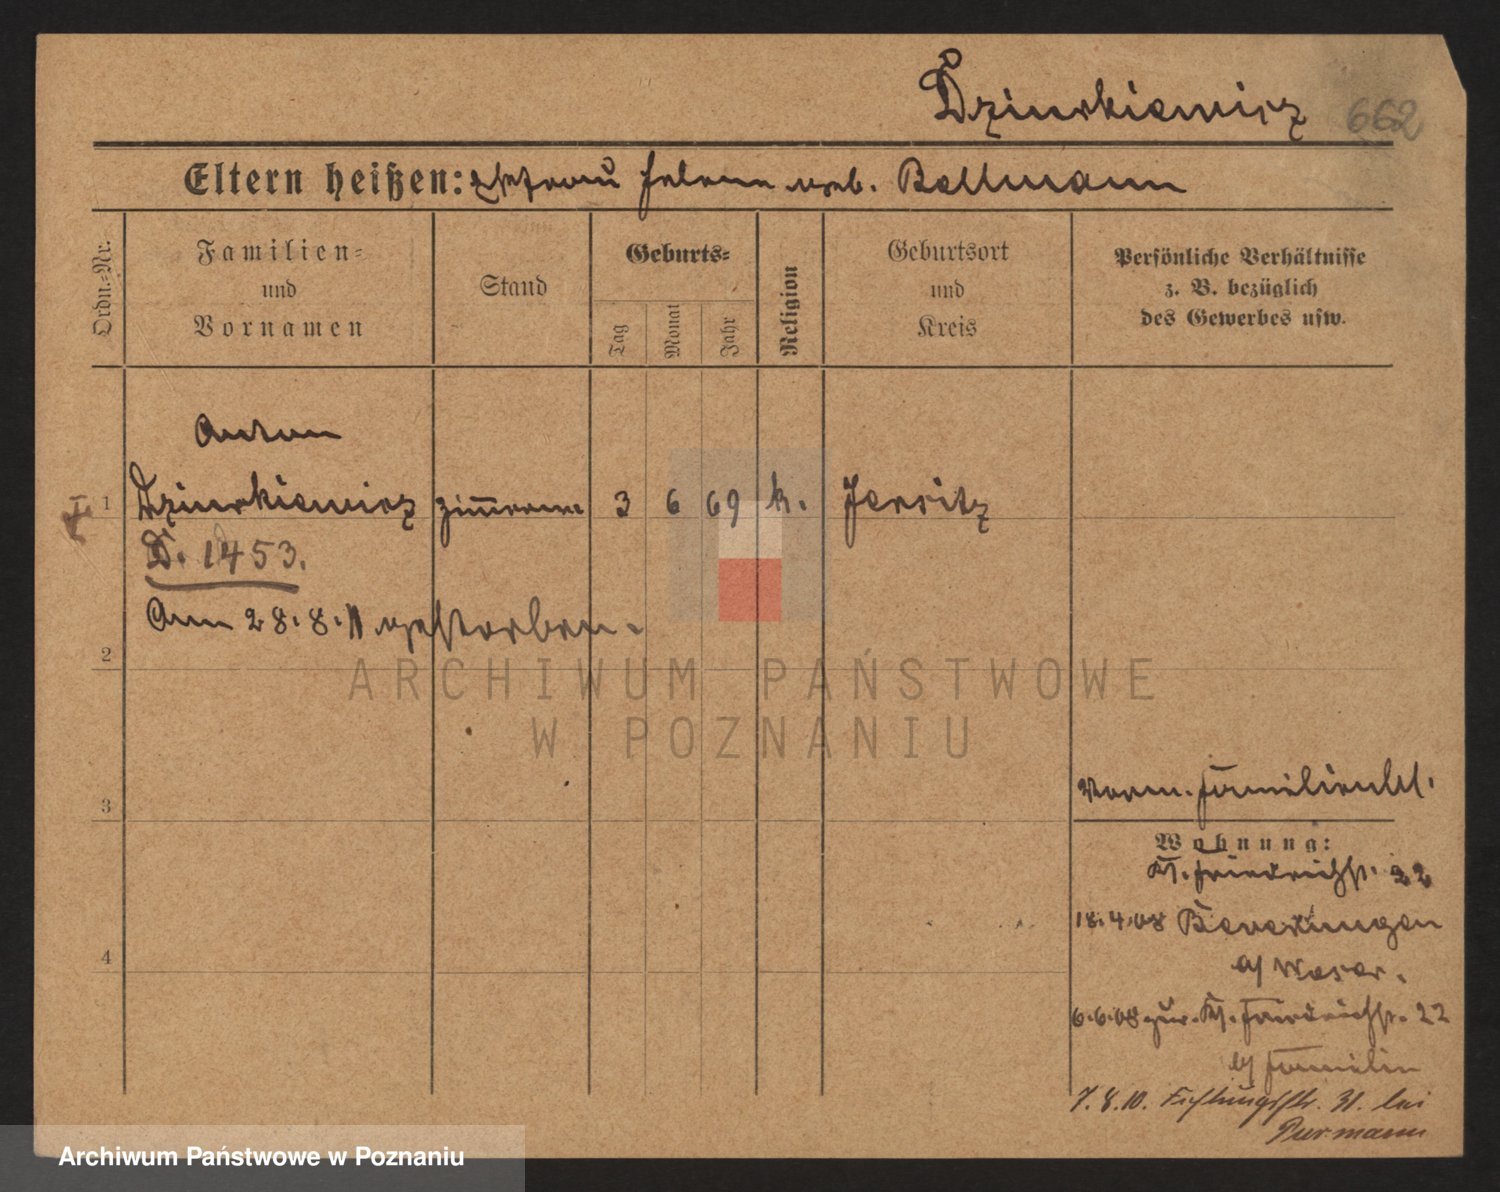 Dziurkiewicz 662
Eltern heißen: Ehefrau Helene geb. Bellmann
Ordn.-Nr.
Familien-
und
Vornamen
Stand
Geburts-
Tag
Monat
Jahr
Religion
Geburtsort
und
Kreis
Persönliche Verhältnisse
z. B. bezüglich
des Gewerbes usw.
Anton
I 1 Dziurkiewicz Zimmerm. 3 6 69 k. Jersitz
D. 1453.
Am 28.8.11 gestorben.
2
ARCHIWUM PAŃSTWOWE
W POZNANIU
3
Wohnung:
Kl. Friedrichstr. 22
18.4.08 Beverungen
a/ Weser.
4
6.6.08 zur. Kl. Friedrichstr. 22
b/ Familie
7.8.10. 31. bei
Purmann
Archiwum Państwowe w Poznaniu